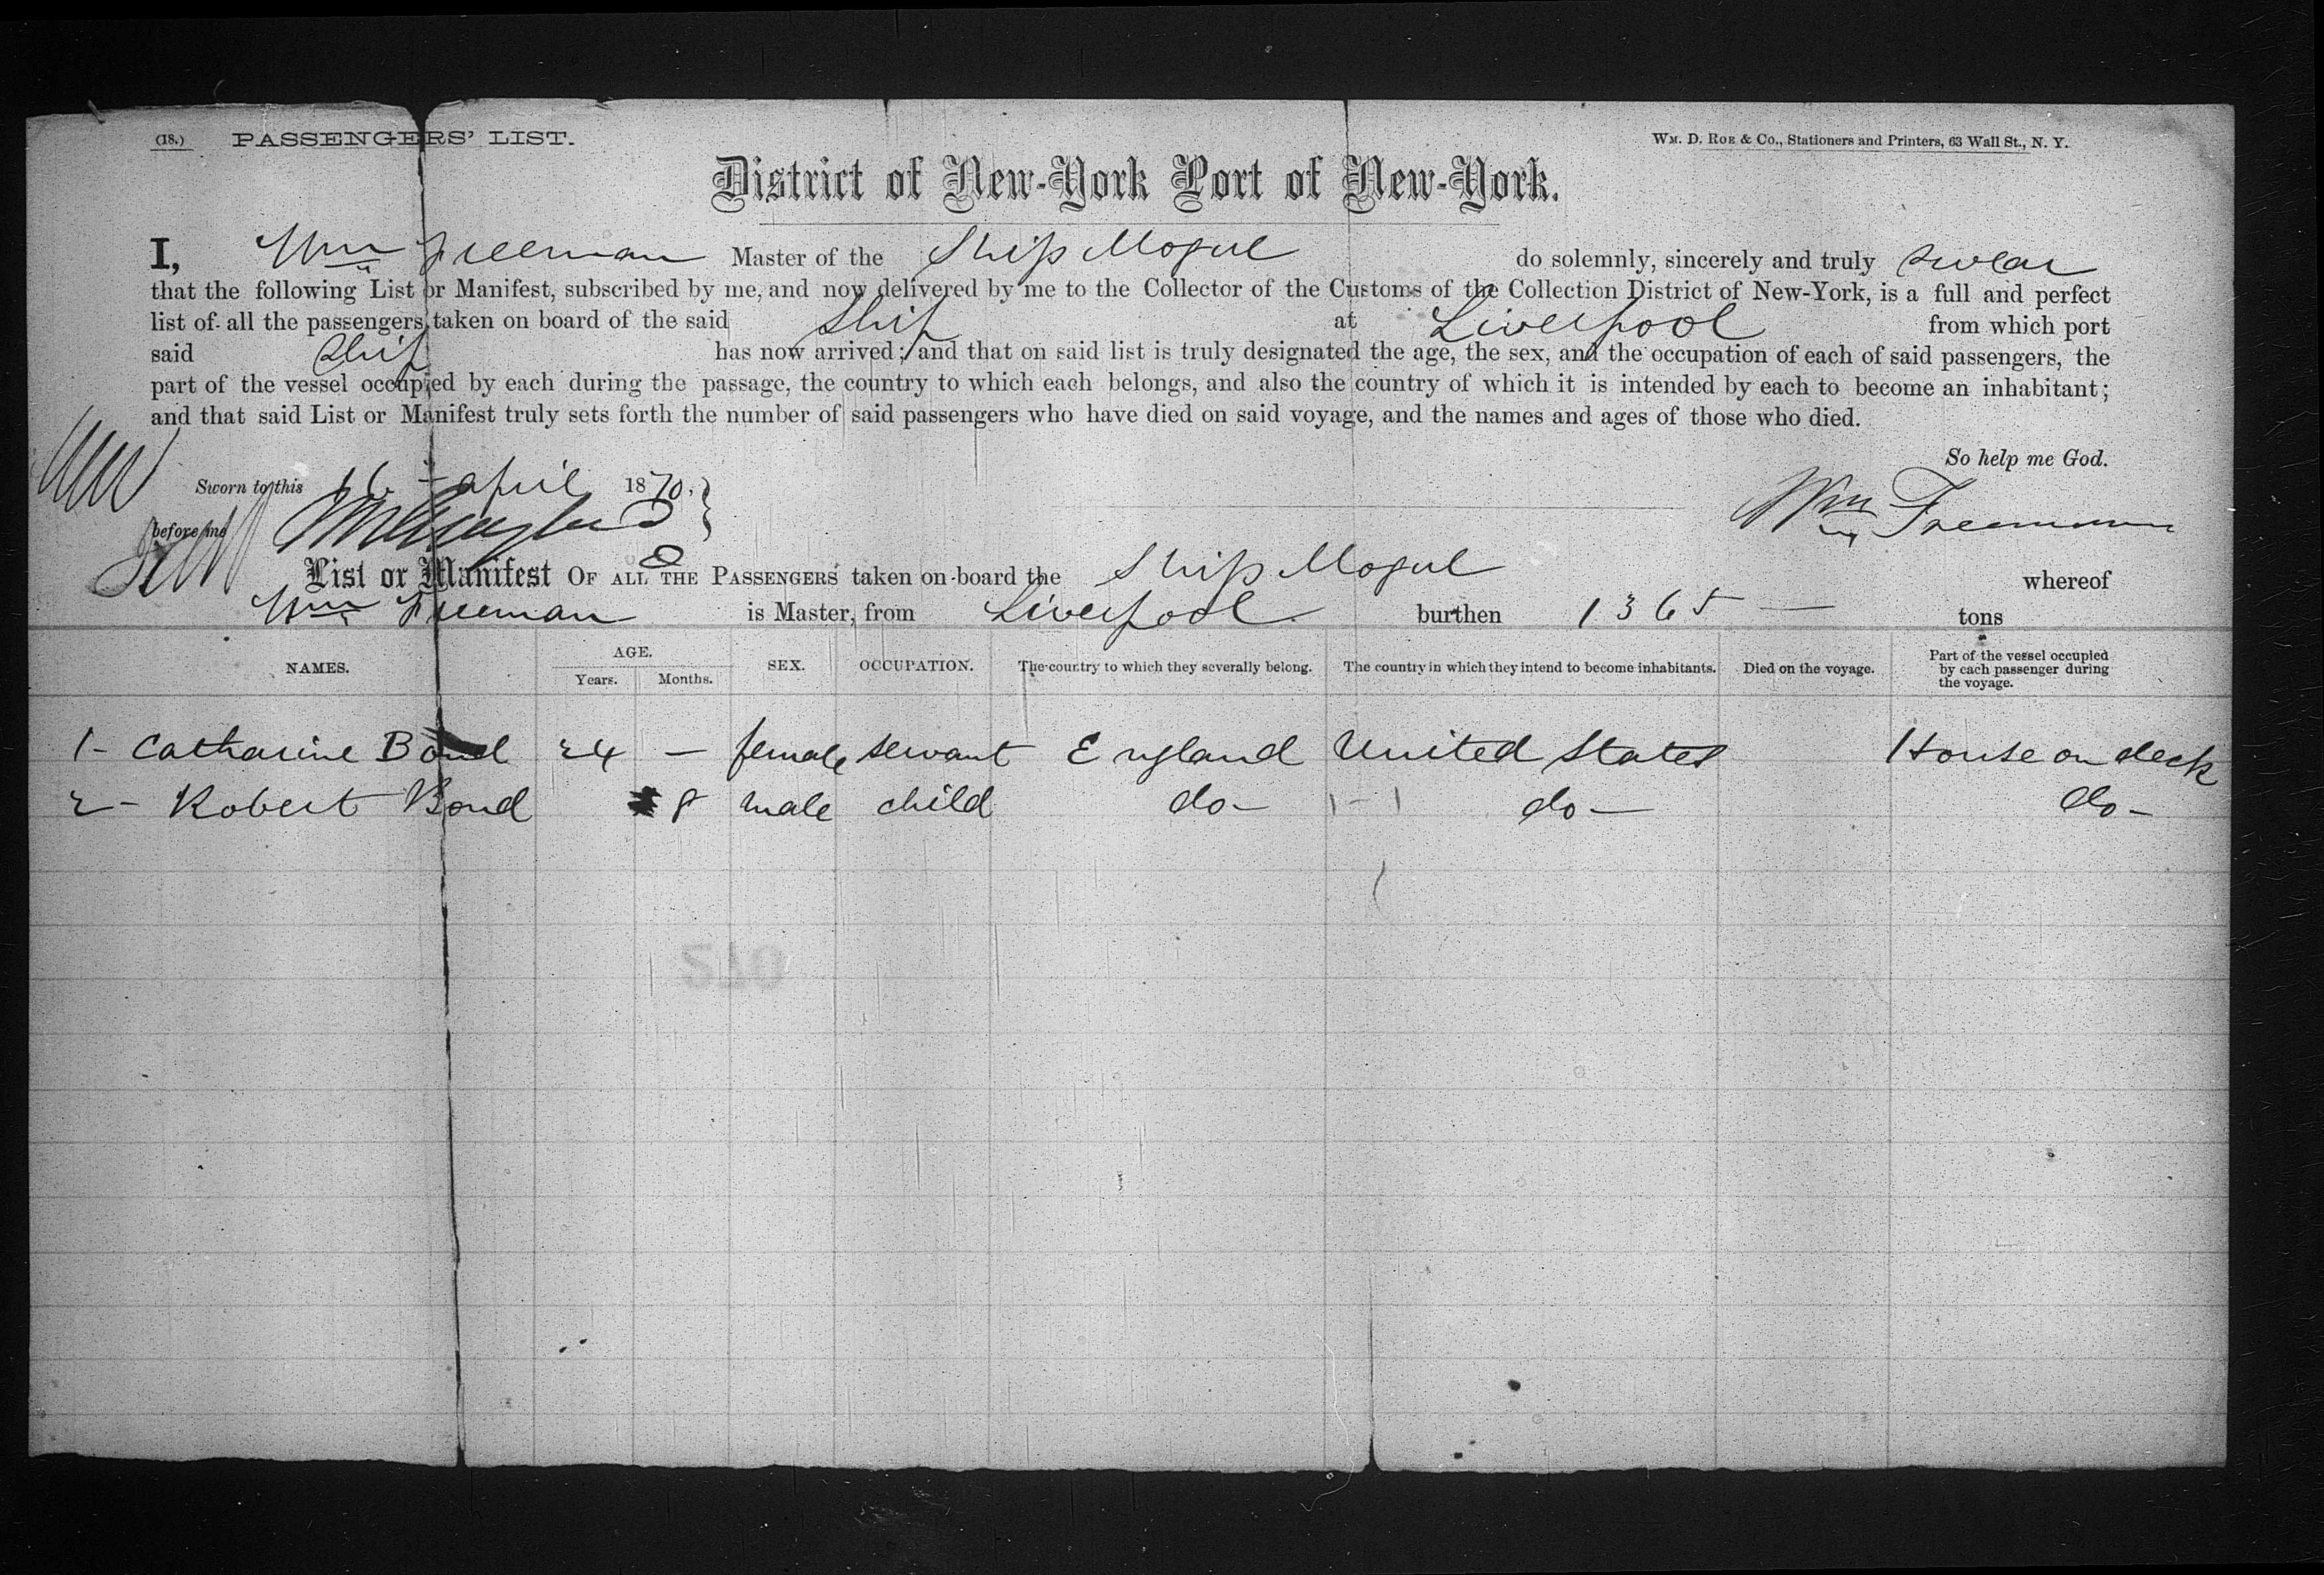 (18.) PASSENGERS' LIST.
WM. D. ROE & CO., Stationers and Printers, 63 Wall St., N. Y.
District of New-York Port of New-York.
I, Wm Freeman Master of the Ship Mogul do solemnly, sincerely and truly swear
that the following List or Manifest, subscribed by me, and now delivered by me to the Collector of the Customs of the Collection District of New-York, is a full and perfect
list of all the passengers taken on board of the said Ship at Liverpool from which port
said Ship has now arrived; and that on said list is truly designated the age, the sex, and the occupation of each of said passengers, the
part of the vessel occupied by each during the passage, the country to which each belongs, and also the country of which it is intended by each to become an inhabitant;
and that said List or Manifest truly sets forth the number of said passengers who have died on said voyage, and the names and ages of those who died.
So help me God.
Sworn to this 16 - april 1870.
before me
Wm Freeman
List or Manifest OF ALL THE PASSENGERS taken on board the Ship Mogul whereof
Wm Freeman is Master, from Liverpool burthen 1365 — tons
NAMES. AGE. Years. Months. SEX. OCCUPATION. The country to which they severally belong. The country in which they intend to become inhabitants. Died on the voyage. Part of the vessel occupied by each passenger during the voyage.
1 - Catharine Bond 24 — female servant England United States House on deck
2 - Robert Bond 8 male child do - do — do -